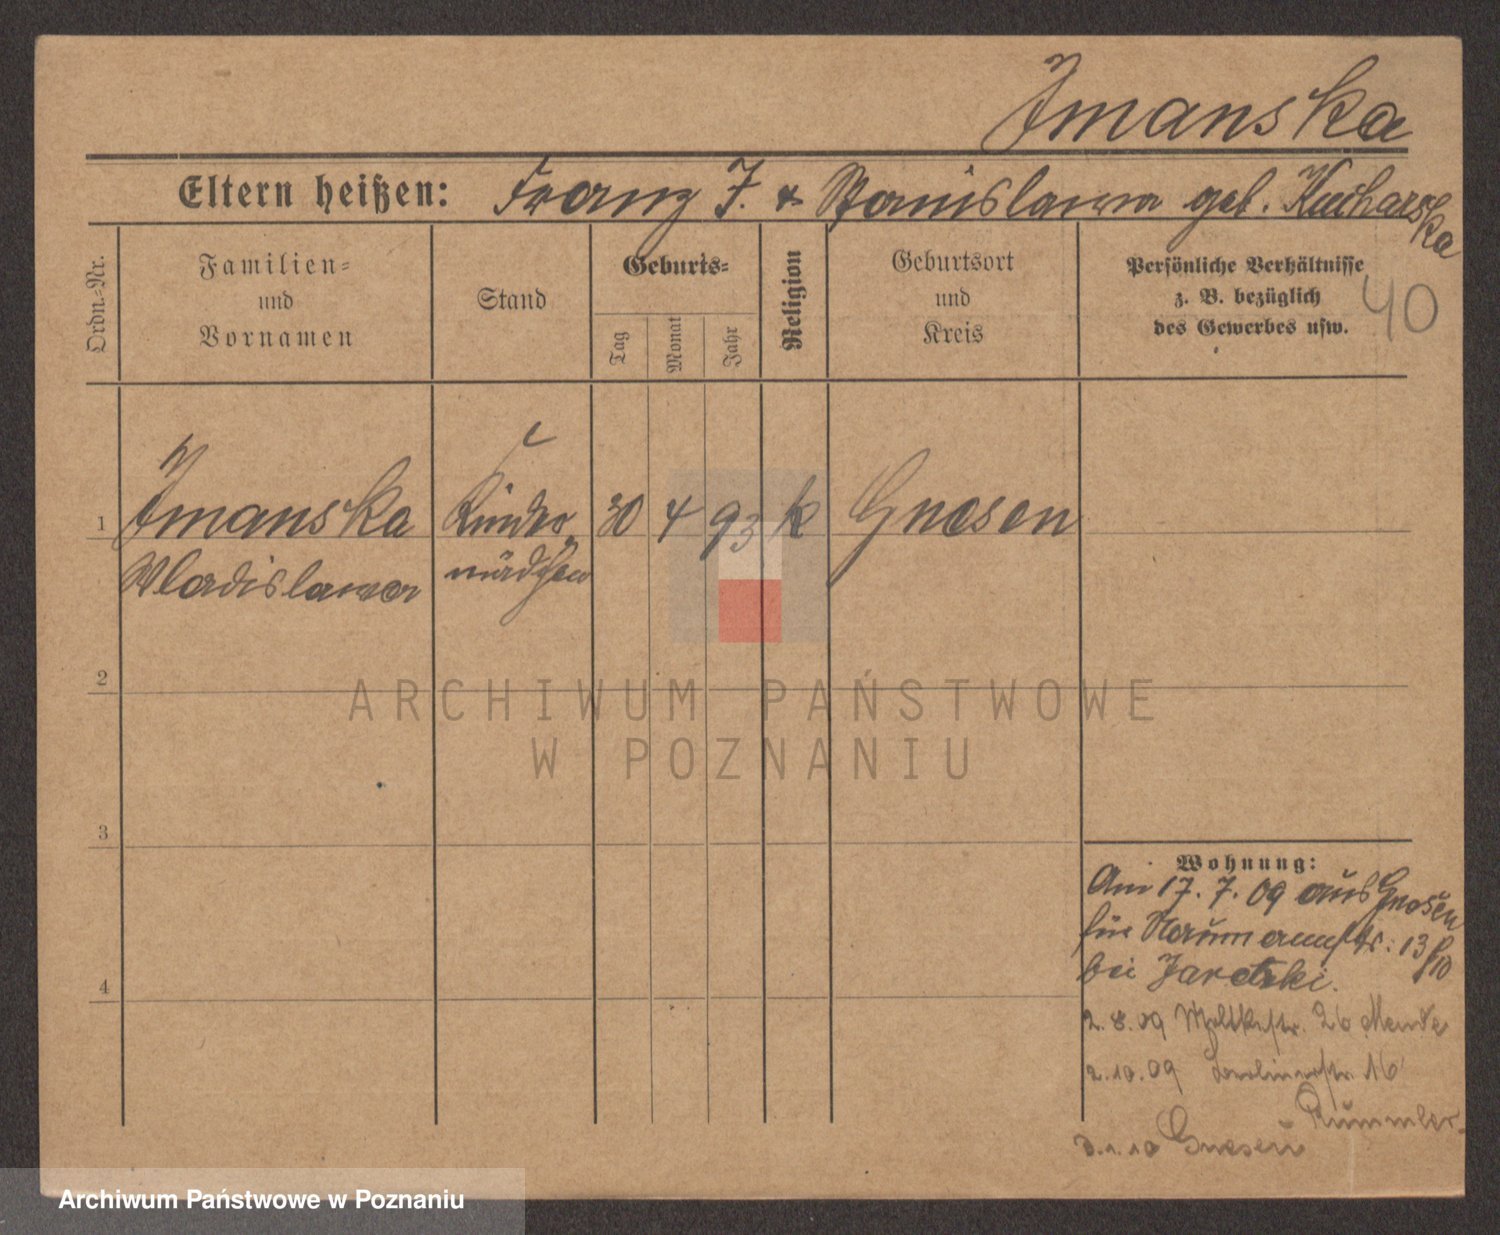 Imanska
Eltern heißen: Franz I. & Stanislawa geb. Kucharska
Ordn.-Nr.
Familien-
und
Vornamen
Stand
Geburts-
Tag
Monat
Jahr
Religion
Geburtsort
und
Kreis
Persönliche Verhältnisse
z. B. bezüglich
des Gewerbes usw.
40
1 Imanska Kinder 30 4 93 k Gnesen
Wladislawa mädchen
2
ARCHIWUM PAŃSTWOWE
W POZNANIU
3
4
Wohnung:
Am 17.7.09 aus Gnesen
für Naumannstr. 13
bei Jaretzki.
2.8.09 Moltkestr. 26 Mende
2.10.09 Berlinerstr. 16
Rummler
3.1.10 Gnesen
Archiwum Państwowe w Poznaniu